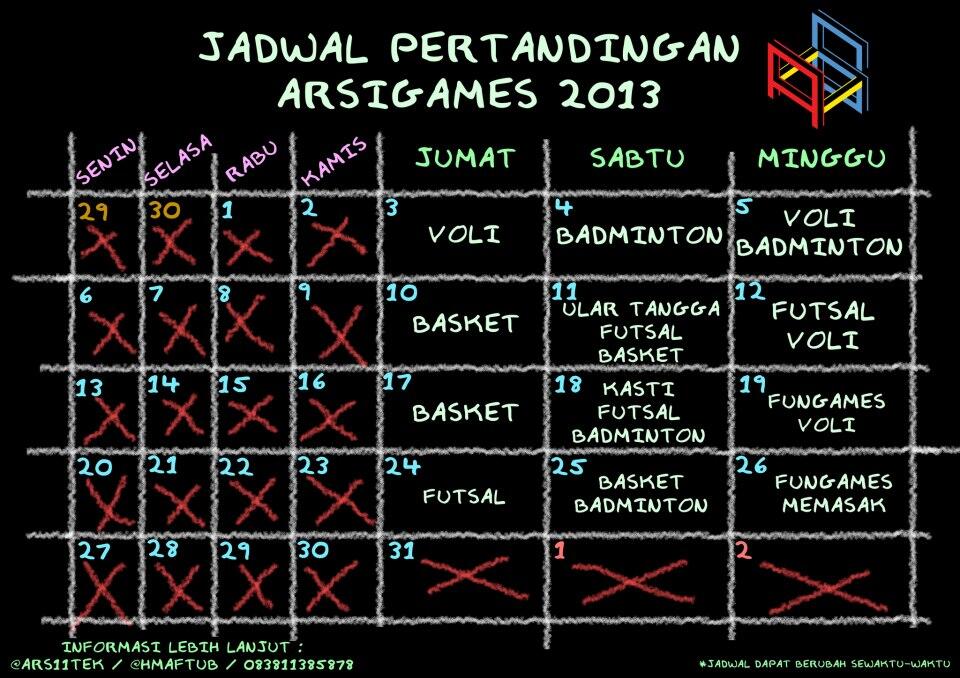 JADWAL PERTANDINGAN
ARSIGAMES 2013
SENIN SELASA RABU KAMIS JUMAT SABTU MINGGU
29 30 1 2 3 4 5
VOLI
BADMINTON
VOLI
BADMINTON
6 7 8 9 10 11 12
BASKET
ULAR TANGGA
FUTSAL
BASKET
FUTSAL
VOLI
13 14 15 16 17 18 19
BASKET
KASTI
FUTSAL
BADMINTON
FUNGAMES
VOLI
20 21 22 23 24 25 26
FUTSAL
BASKET
BADMINTON
FUNGAMES
MEMASAK
27 28 29 30 31 1 2
INFORMASI LEBIH LANJUT :
@ARS11TEK / @HMAFTUB / 083811385878
*JADWAL DAPAT BERUBAH SEWAKTU-WAKTU